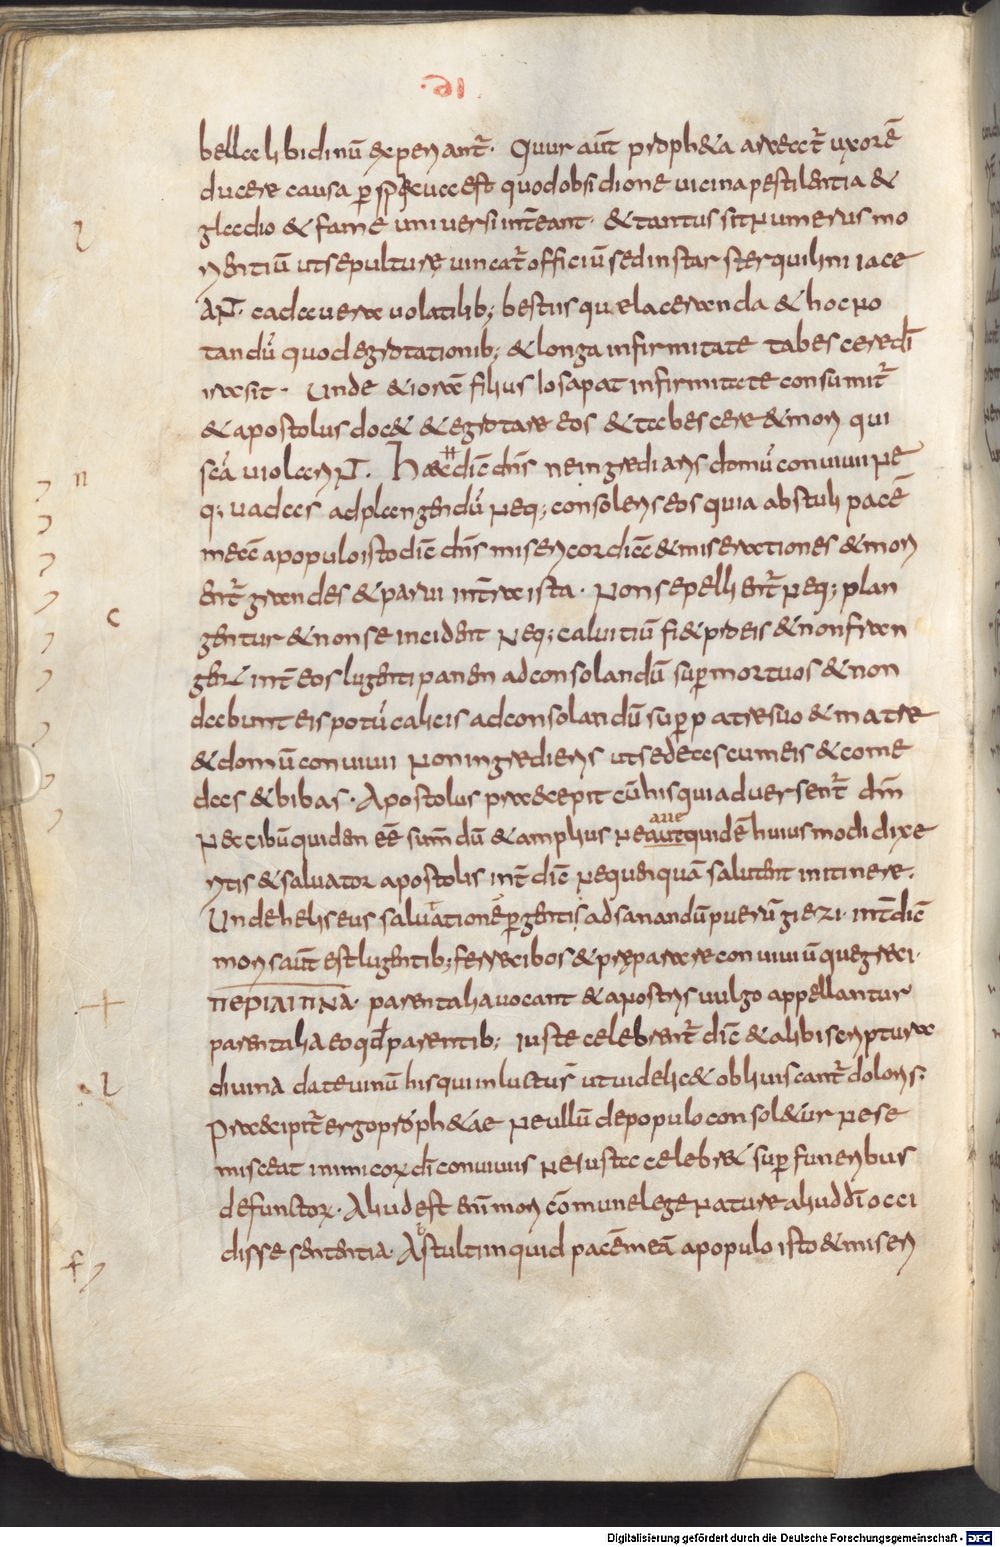 .16.
bella libidinū experiant̄. Quur aūt proph&a arceat̄ uxorē
ducere causa p̱spicua est quod obsidione uicina pestilentia &
gladio & fame uniuersi inteant. & tantus sit numerus mo
rientiū ut sepulturę uincat̄ officiū sed in star sterquilinii iace
ant. cadauera uolatilib; bestiisquę laceranda & hoc no
tandū quod egrotationib; & longa infirmitate tabescere di
rexsit. Unde & ioram filius Iosapat infirmitate consumit̄
& apostolus doc& & egrotare eos & tabescere & mori qui
scā uiolarint. Haec dic̄ dn̄s ne ingrediaris domū conuiuii ne
q; uadas ad plangendū neq; consoleris eos quia abstuli pacē
meam a populo isto dic̄ dn̄s misericordiā & miserationes & mori
ent̄ grandes & parui in t̄ra ista. Non sepelient̄ neq; plan
gentur & non se incident neq; caluitiū fi& pro eis & non fran
gent int̄ eos lugenti panem ad consolandū sup̱ mortuos & non
dabunt eis potū calicis ad consolandū sup̱ patre suo & matre
& domū conuiuii non ingredieris ut sedeas cum eis & come
das & bibas. Apostolus praecepit cū his qui aduersent̄ dn̄i
nec cibū quidem eē sumendū & amplius ne aue quidē huiusmodi dixe
ritis & saluator apostolis int̄dic̄ ne quemquā salutent in itinere.
Unde heliseus saluationē p̱gentis ad sanandū puerū giezi. int̄dic̄
moris aūt est lugentib; ferre cibos & pręparare conuiuiū que greci.
ΠΕΡΙΔΙΠΝΑ. parentalia uocant & a nostris uulgo appellantur
parentalia eo qd̄ parentib; iuste celebrent̄ dic̄ & alibi scriptura
diuina date uinū his qui in luctu s̄ ut uidelic& obliuiscant̄ doloris.
Praecipit̄ ergo proph&ae ne ullū de populo consol&ur nec se
misceat inimicor̄ dī conuiuiis ne iusta celebr& sup̱ funeribus
defunctor̄. Aliud est enī mori cōmune lege nature aliud dī occi
disse sententia. Abstuli inquid pacē meā a populo isto & miseri